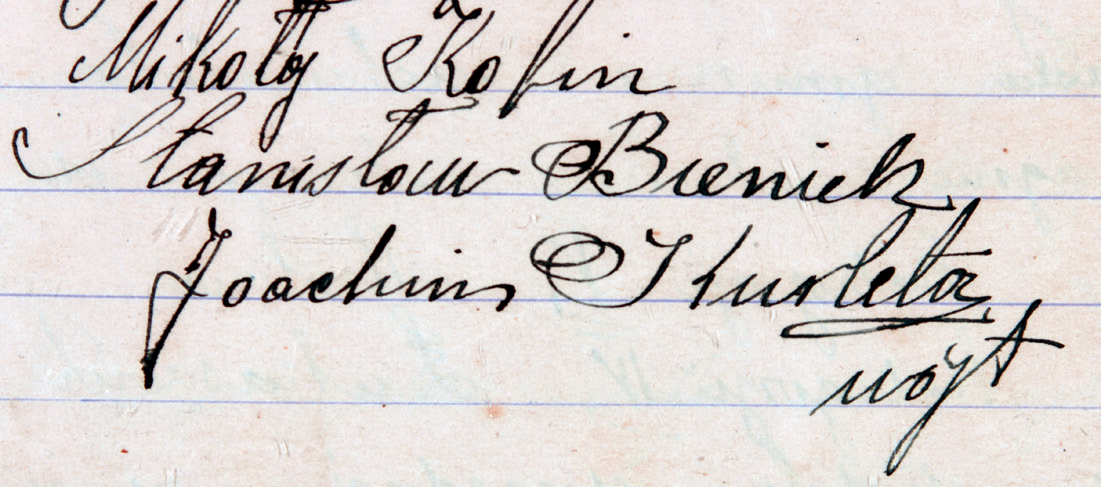 Mikołaj Kofin
Stanisław Bieniek
Joachim Kurleta
wójt